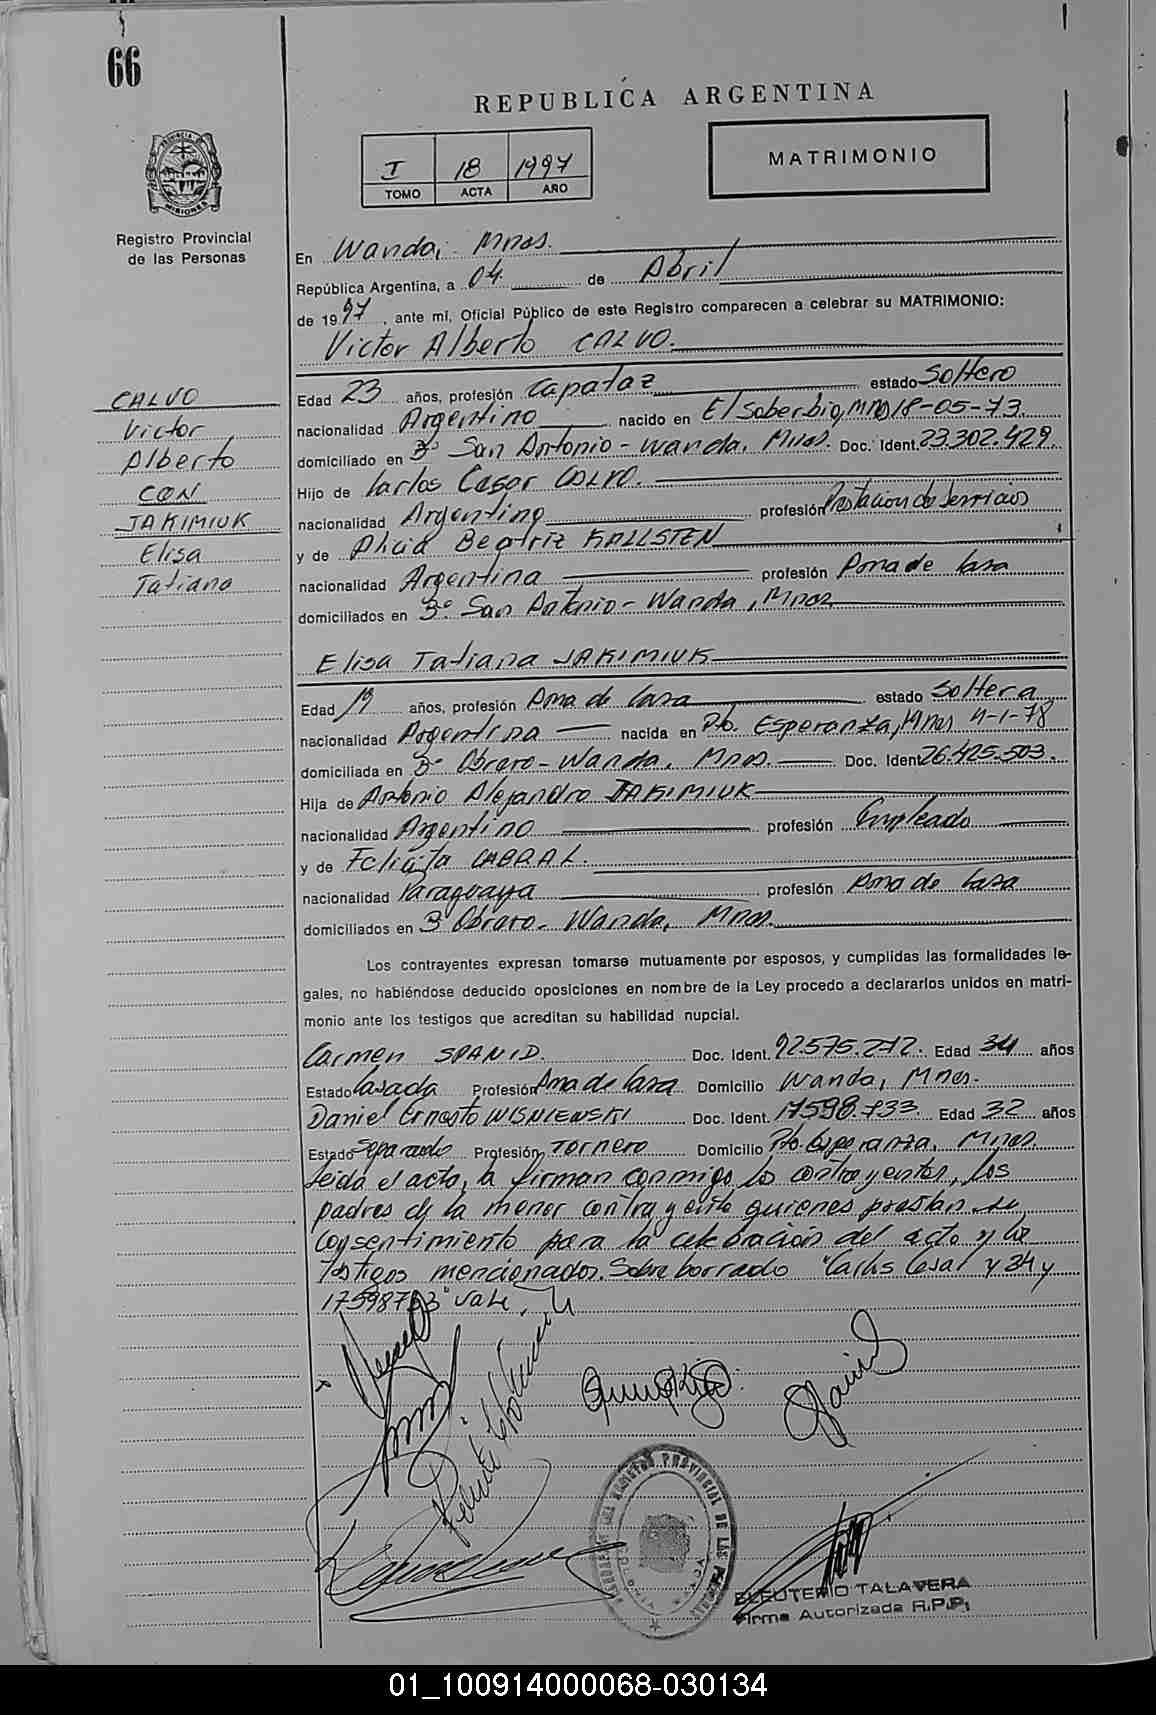 66
REPUBLICA ARGENTINA
I 18 1997
TOMO ACTA AÑO
MATRIMONIO
PROVINCIA DE MISIONES
Registro Provincial
de las Personas
CALVO
Victor
Alberto
CON
JAKIMIUK
Elisa
Tatiana
En Wanda, Mnes.
República Argentina, a 04 de Abril
de 1997, ante mí, Oficial Público de este Registro comparecen a celebrar su MATRIMONIO:
Victor Alberto CALVO.
Edad 23 años, profesión Capataz estado Soltero
nacionalidad Argentino nacido en El Soberbio, Mnes 18-05-73.
domiciliado en Bº San Antonio - Wanda, Mnes. Doc. Ident. 23.302.429.
Hijo de Carlos Cesar CALVO.
nacionalidad Argentino profesión Prestacion de Servicios
y de Alicia Beatriz KALLSTEN
nacionalidad Argentina profesión Ama de Casa
domiciliados en Bº San Antonio - Wanda, Mnes
Elisa Tatiana JAKIMIUK
Edad 19 años, profesión Ama de Casa estado Soltera
nacionalidad Argentina nacida en Pto. Esperanza, Mnes 4-1-78
domiciliada en Bº Obrero - Wanda, Mnes. Doc. Ident 26.425.503.
Hija de Antonio Alejandro JAKIMIUK
nacionalidad Argentino profesión Empleado
y de Felicita CABRAL.
nacionalidad Paraguaya profesión Ama de Casa
domiciliados en Bº Obrero - Wanda, Mnes.
Los contrayentes expresan tomarse mutuamente por esposos, y cumplidas las formalidades le-
gales, no habiéndose deducido oposiciones en nombre de la Ley procedo a declararlos unidos en matri-
monio ante los testigos que acreditan su habilidad nupcial.
Carmen SPANID. Doc. Ident. 92.575.272. Edad 34 años
Estado Casada Profesión Ama de Casa Domicilio Wanda, Mnes.
Daniel Ernesto WISNIEWSKI Doc. Ident. 17598.733. Edad 32 años
Estado Separado Profesión Tornero Domicilio Pto. Esperanza, Mnes.
Leida el acta, la firman conmigo los contrayentes, los
padres de la menor contrayente quienes prestan su
consentimiento para la celebración del acto y los
testigos mencionados. Sobre borrado "Carlos Cesar y 34 y
17598733" vale.
REGISTRO PROVINCIAL DE LAS
ELEUTERIO TALAVERA
Firma Autorizada R.P.P.
01_100914000068-030134